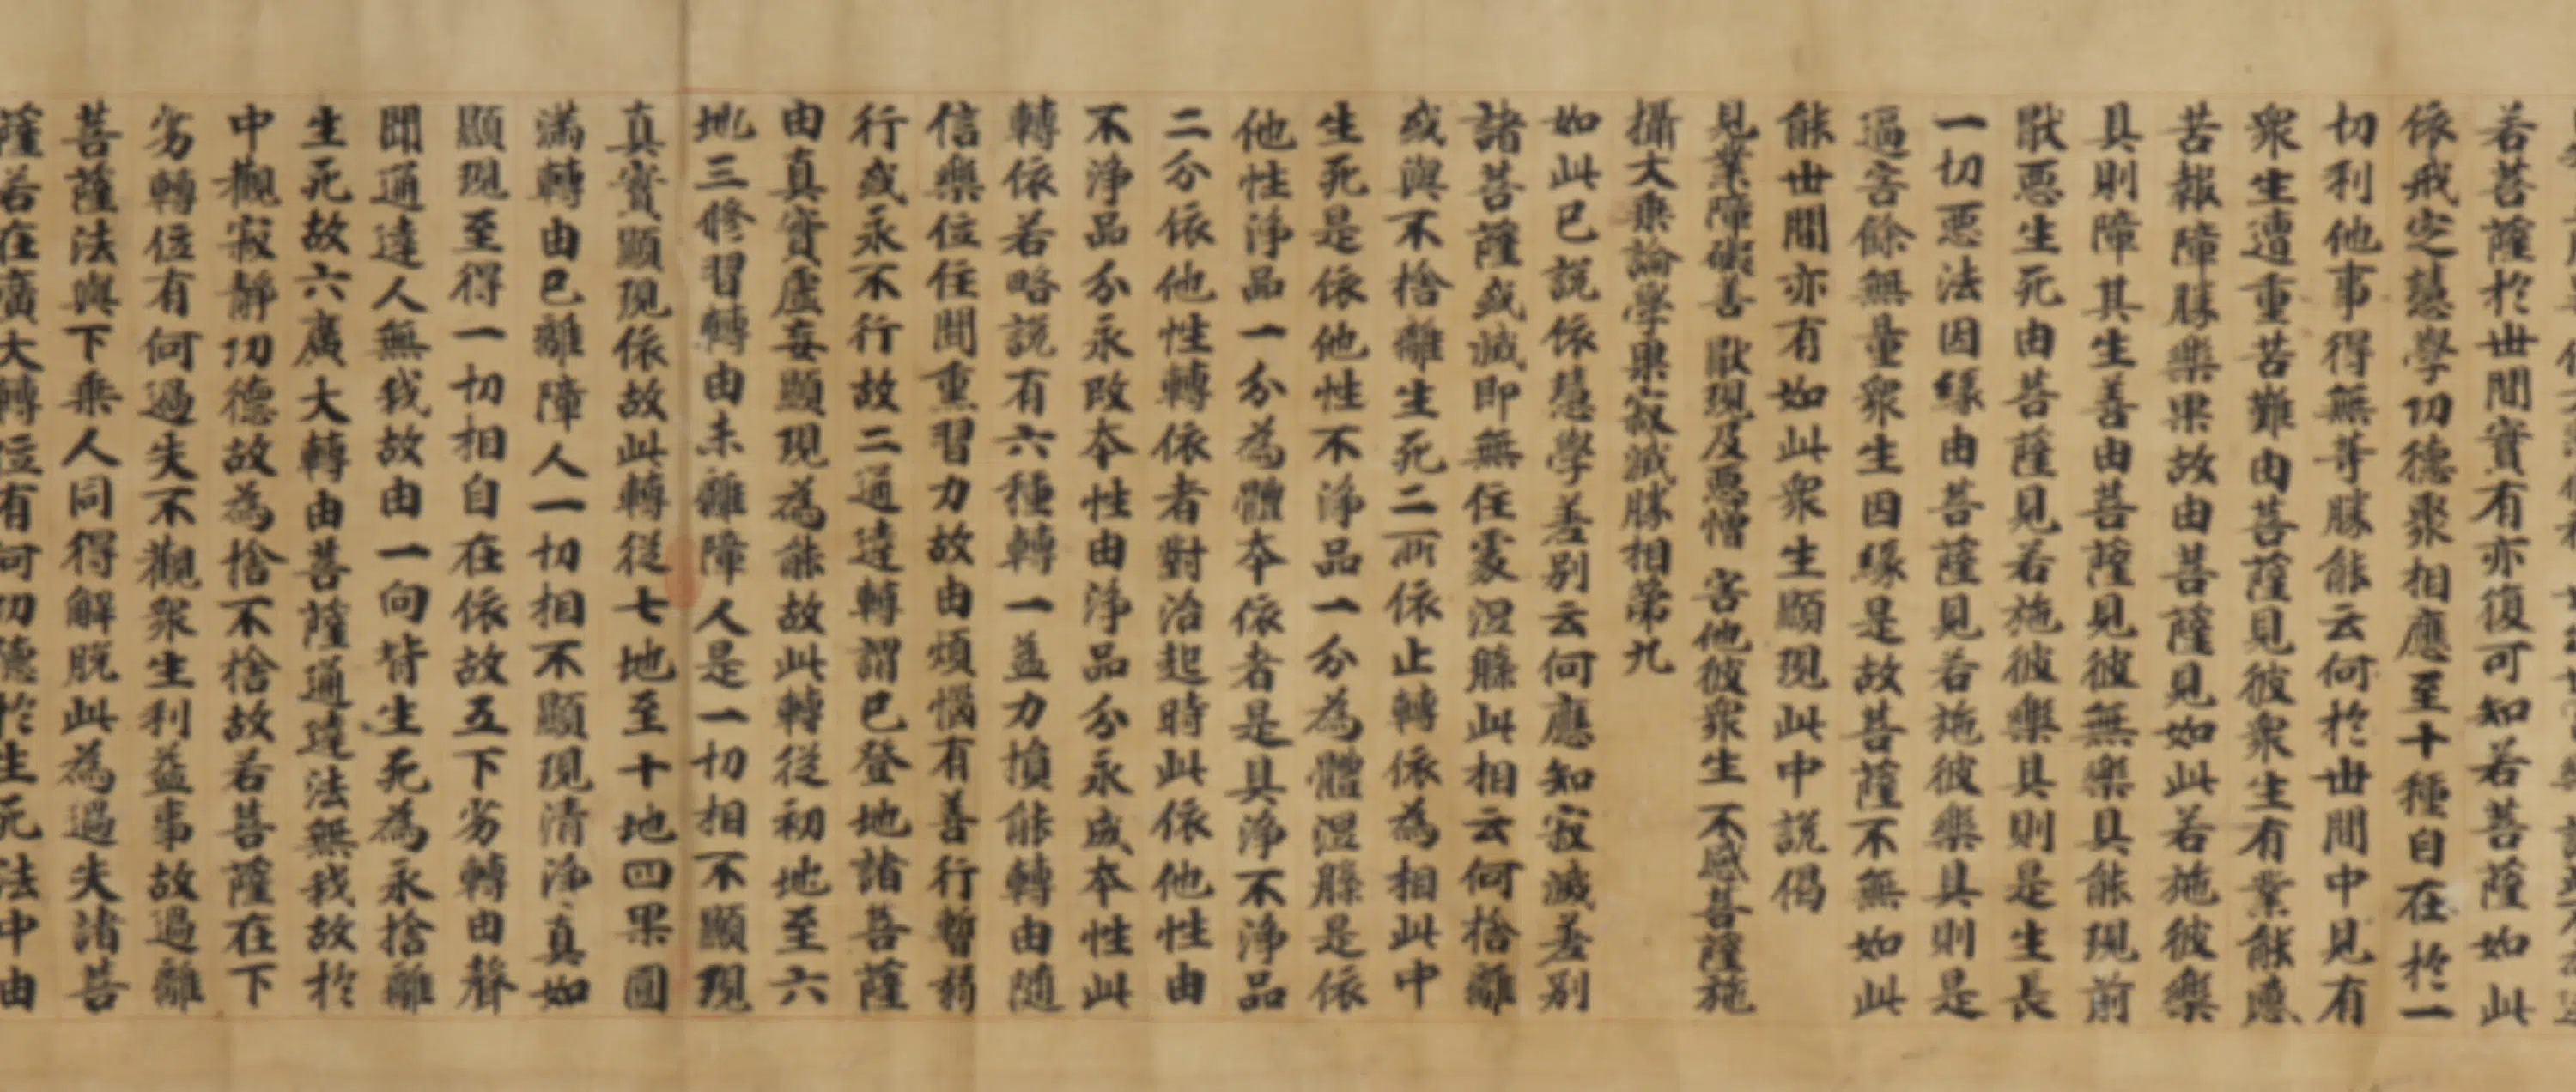 若菩薩於世間實有亦復可知若菩薩如此
依戒定慧學功德聚相應至十種自在於一
切利他事得無等勝能云何於世間中見有
衆生遭重苦難由菩薩見彼衆生有業能感
苦報障勝樂果故由菩薩見如此若施彼樂
具則障其生善由菩薩見彼無樂具能現前
猒惡生死由菩薩見若施彼樂具則是生長
一切惡法因緣由菩薩見若施彼樂具則是
逼害餘無量衆生因緣是故菩薩不無如此
能世間亦有如此衆生顯現此中說偈
見業障礙善 猒現及惡憎 害他彼衆生 不感菩薩施
攝大乘論學果寂滅勝相第九
如此已說依慧學差別云何應知寂滅差別
諸菩薩或滅即無住處涅槃此相云何捨離
或與不捨離生死二所依止轉依為相此中
生死是依他性不淨品一分為體涅槃是依
他性淨品一分為體本依者是具淨不淨品
二分依他性轉依者對治起時此依他性由
不淨品分永改本性由淨品分永成本性此
轉依若略說有六種轉一益力損能轉由隨
信樂位住聞熏習力故由煩惱有善行暫羞
行或永不行故二通達轉謂已登地諸菩薩
由真實虛妄顯現為能故此轉從初地至六
地三修習轉由未離障人是一切相不顯現
真實顯現依故此轉從七地至十地四果圓
滿轉由已離障人一切相不顯現清淨真如
顯現至得一切相自在依故五下劣轉由聲
聞通達人無我故由一向背生死為永捨離
生死故六廣大轉由菩薩通達法無我故於
中觀寂靜功德故為捨不捨故若菩薩在下
劣轉位有何過失不觀衆生利益事故過離
菩薩法與下乘人同得解脫此為過失諸菩
薩若在廣大轉位有何功德於生死法中由